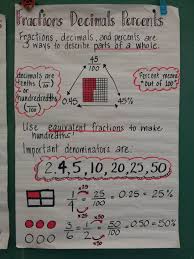 Fractions Decimals Percents
Fractions, decimals, and percents are
3 ways to describe parts of a whole.
decimals are
tenths (10)
or
hundredths
(100)
45
100
0.45
45%
Percent means
"out of 100"
Use equivalent fractions to make
hundredths!
Important denominators are:
2, 4, 5, 10, 20, 25, 50
1/4 = 25/100 = 0.25 = 25%
×25
×25
3/6 = 1/2 = 50/100 = 0.50 = 50%
×50
×50